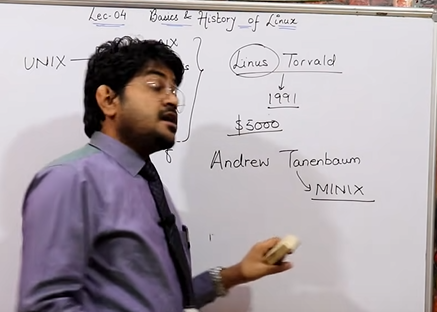 Lec-04 Basics & History of Linux
UNIX
Linus Torvald
1991
$5000
Andrew Tanenbaum
MINIX